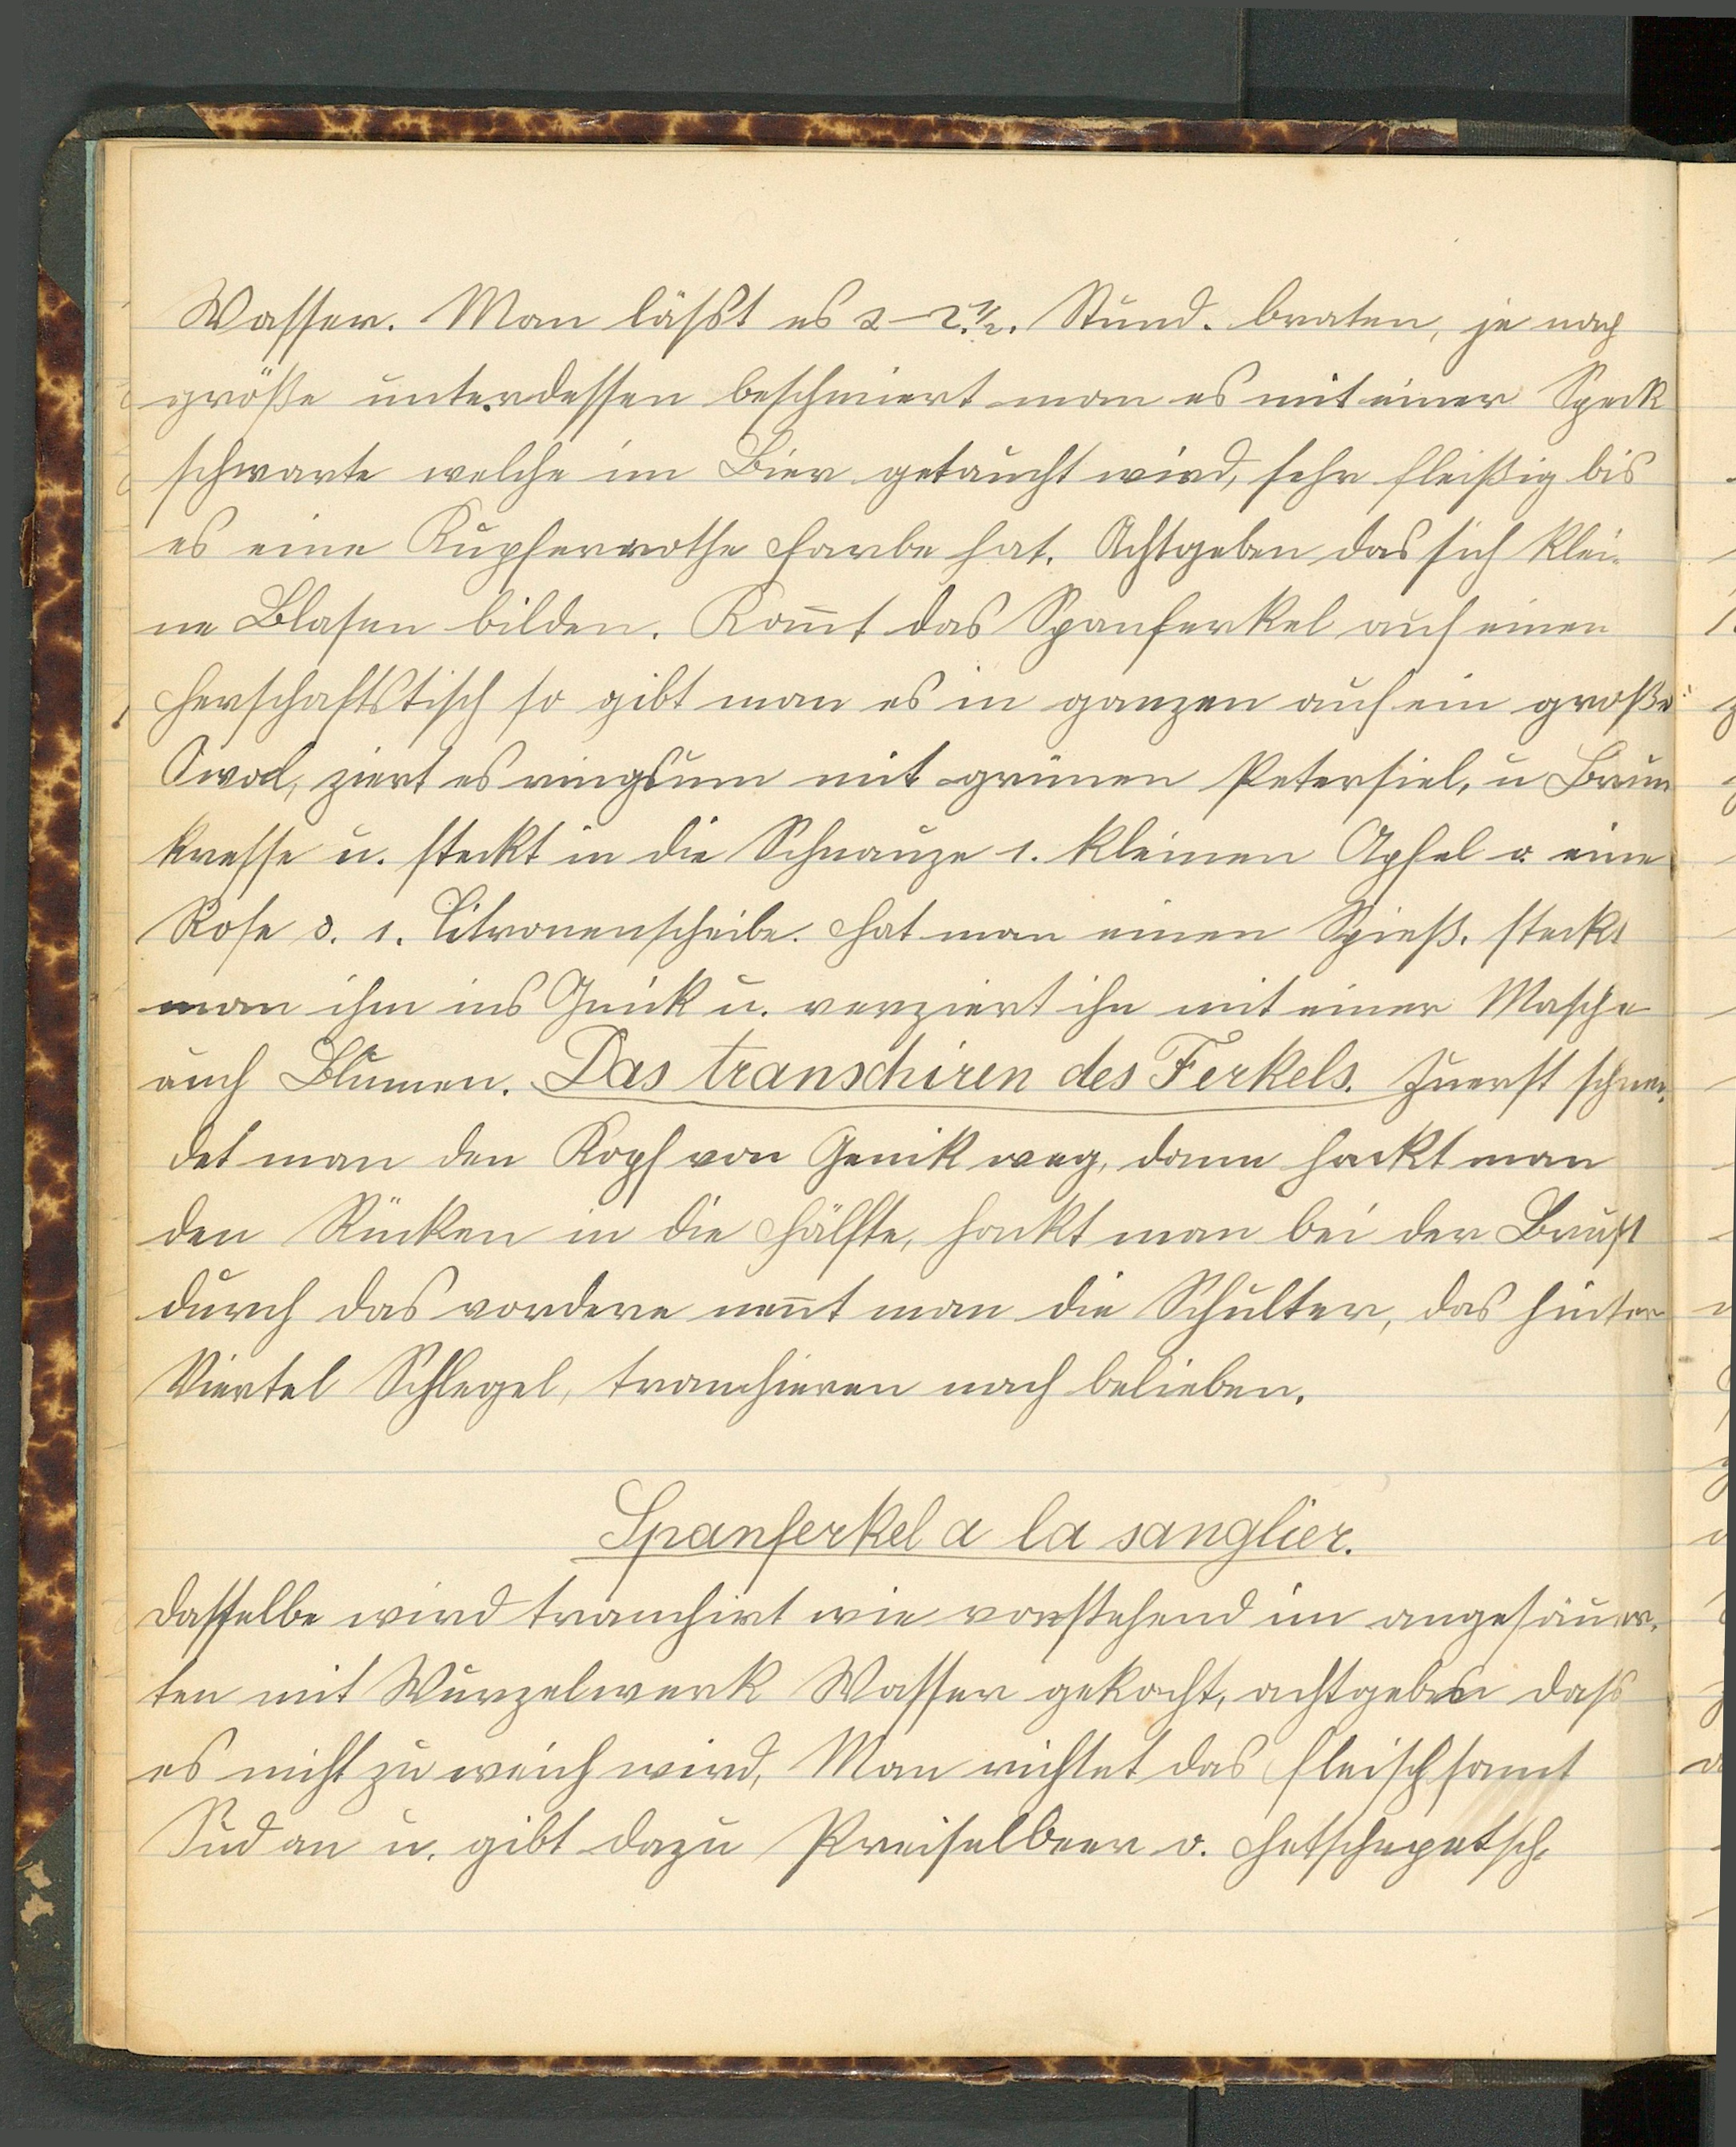 Wasser. Man läßt es 2–2.½. Stund. braten, je nach
größe unterdessen beschmiert man es mit einer Speck
schwarte welche im Bier getaucht wird, sehr fleißig bis
es eine Kupferrothe Farbe hat. Achtgeben das sich klei-
ne Blasen bilden. Kom̅t das Spanferkel auf einen
Herschaftstisch so gibt man es in ganzen auf ein große
ziert es ringsum mit grünen Petersiel, u Brun
kresse u. steckt in die Schnauze 1. kleinen Apfel o. eine
Rose o. 1. Citronenscheibe. Hat man einen Spieß. steckt
man ihm ins Gnick u. verziert ihn mit einer Masche
auch Blumen. Das transchiren des Ferkels. Zuerst schnei-
det man den Kopf von Genik weg, dann hackt man
den Rücken in die Hälfte, hackt man bei der Brust
durch das vordere nen̅t man die Schulter, das hinter
Viertel Schlegel, tranchieren nach belieben.
Spanferkel a la sanglier.
dasselbe wird tranchirt wie vorstehend im angesäuer-
ten mit Wurzelwerk Wasser gekocht, achtgeben dass
es nicht zu weich wird, Man richtet das Fleisch samt
Sud an u. gibt dazu Preiselbeer o. Hetschepetsch.